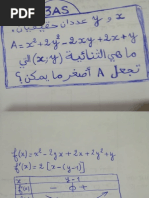 BAS
x و y عددان حقيقيان.
A = x² + 2y² - 2xy + 2x + y
ما هي الثنائية (x; y) التي
تجعل A أصغر ما يمكن؟
f(x) = x² - 2yx + 2x + 2y² + y
f'(x) = 2 [x - (y-1)]
x y-1
f'(x) - 0 +